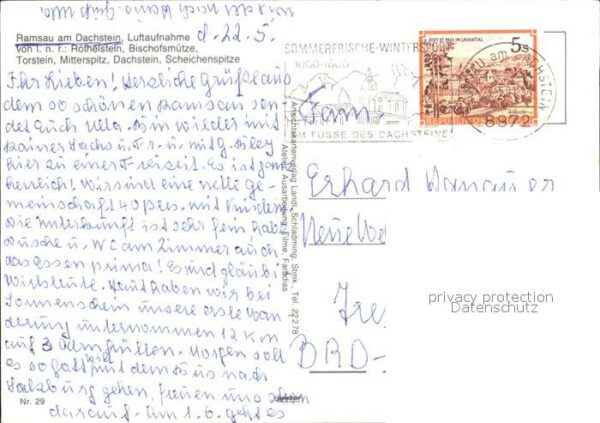 Ramsau am Dachstein, Luftaufnahme
von l. n. r.: Rötelstein, Bischofsmütze,
Torstein, Mitterspitz, Dachstein, Scheichenspitze
d. 22.5.
Ihr Lieben! Herzliche Grüße aus
dem so schönen Ramsau sen-
det Euch Utta. Bin wieder mit
hier zu einer Freizeit. Es ist ganz
herrlich! Wir sind eine nette Ge-
meinschaft 40 Pers. mit Kindern.
Die Unterkunft ist sehr fein habe
Dusche u. WC am Zimmer auch
das Essen prima! Es sind gläubi
Wirtsleute. Heut haben wir bei
Sonnenschein unsere erste Wan
derung unternommen 12 km
auf 3 Almhütten. Morgen soll
es so Gott will mit dem Bus nach
Salzburg gehen, freuen uns schon
darauf. Am 1.6. geht es
Nr. 29
SOMMERFRISCHE-WINTERSPORT
AM FUSSE DES DACHSTEINS
STIFT ST. PAUL IM LAVANTTAL
5s
8972
Fam.
Erhard
BRD-
Ansichtskartenverlag Landl, Schladming, Stmk., Tel. 22278
privacy protection
Datenschutz